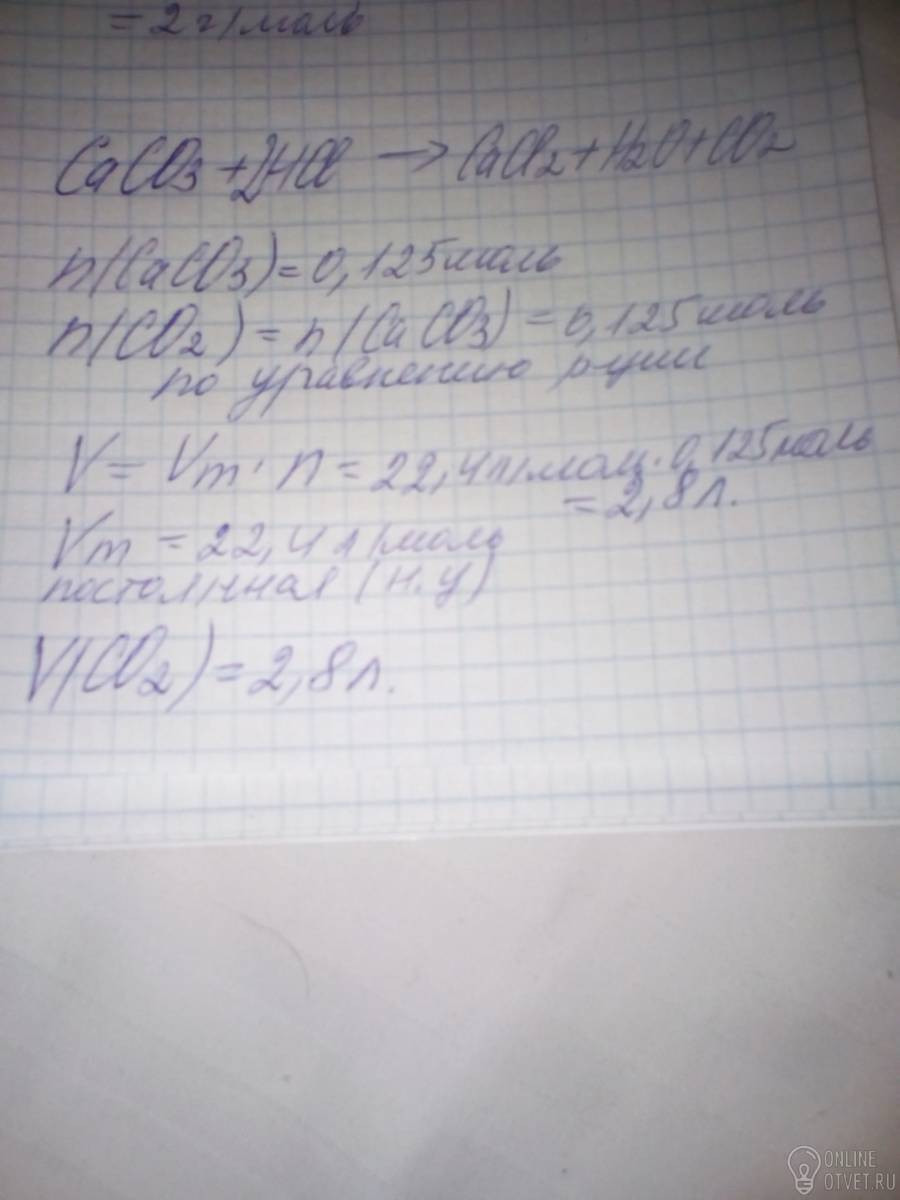 = 2 г/моль
CaCO3 + 2HCl → CaCl2 + H2O + CO2
n(CaCO3) = 0,125 моль
n(CO2) = n(CaCO3) = 0,125 моль
по уравнению р-ции
V = Vm · n = 22,4 л/моль · 0,125 моль
= 2,8 л.
Vm = 22,4 л/моль
постоянная (н.у)
V(CO2) = 2,8 л.
ONLINE
OTVET.RU